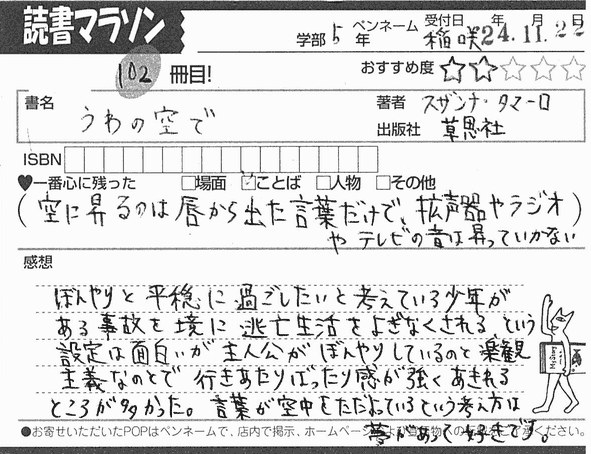 読書マラソン
学部 5 年
ペンネーム 稲咲
受付日 年 月 日
24.11.22
102 冊目!
おすすめ度 ☆☆☆☆☆
書名 うわの空で
著者 スザンナ・タマーロ
出版社 草思社
ISBN
♥一番心に残った □場面 ☑ことば □人物 □その他
(空に昇るのは唇から出た言葉だけで、拡声器やラジオ)
やテレビの音は昇っていかない
感想
ぼんやりと平穏に過ごしたいと考えている少年が
ある事故を境に逃亡生活をよぎなくされるという
設定は面白いが主人公がぼんやりしているのと楽観
主義なのとで行きあたりばったり感が強くあきれる
ところが多かった。言葉が空中をただよっているという考え方は
夢があって好きです。
●お寄せいただいたPOPはペンネームで、店内で掲示、ホームページおよび
ご了承ください。